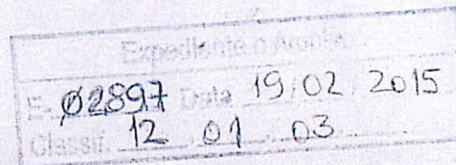 Expediente o Archivo
E- Ø2897 Data 19.02.2015
Classif. 12.01.03